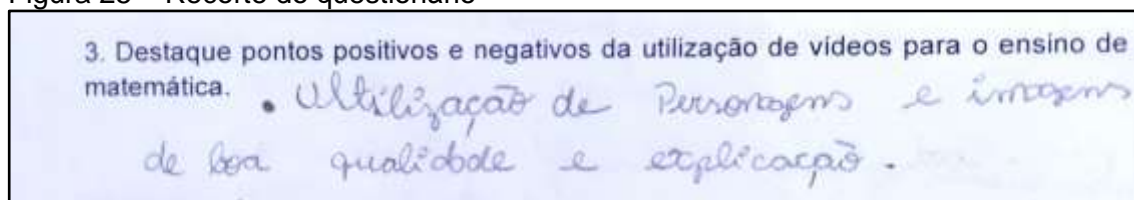 3. Destaque pontos positivos e negativos da utilização de vídeos para o ensino de
matemática. • Ultilização de Personagens e imagens
de boa qualidade e explicação.